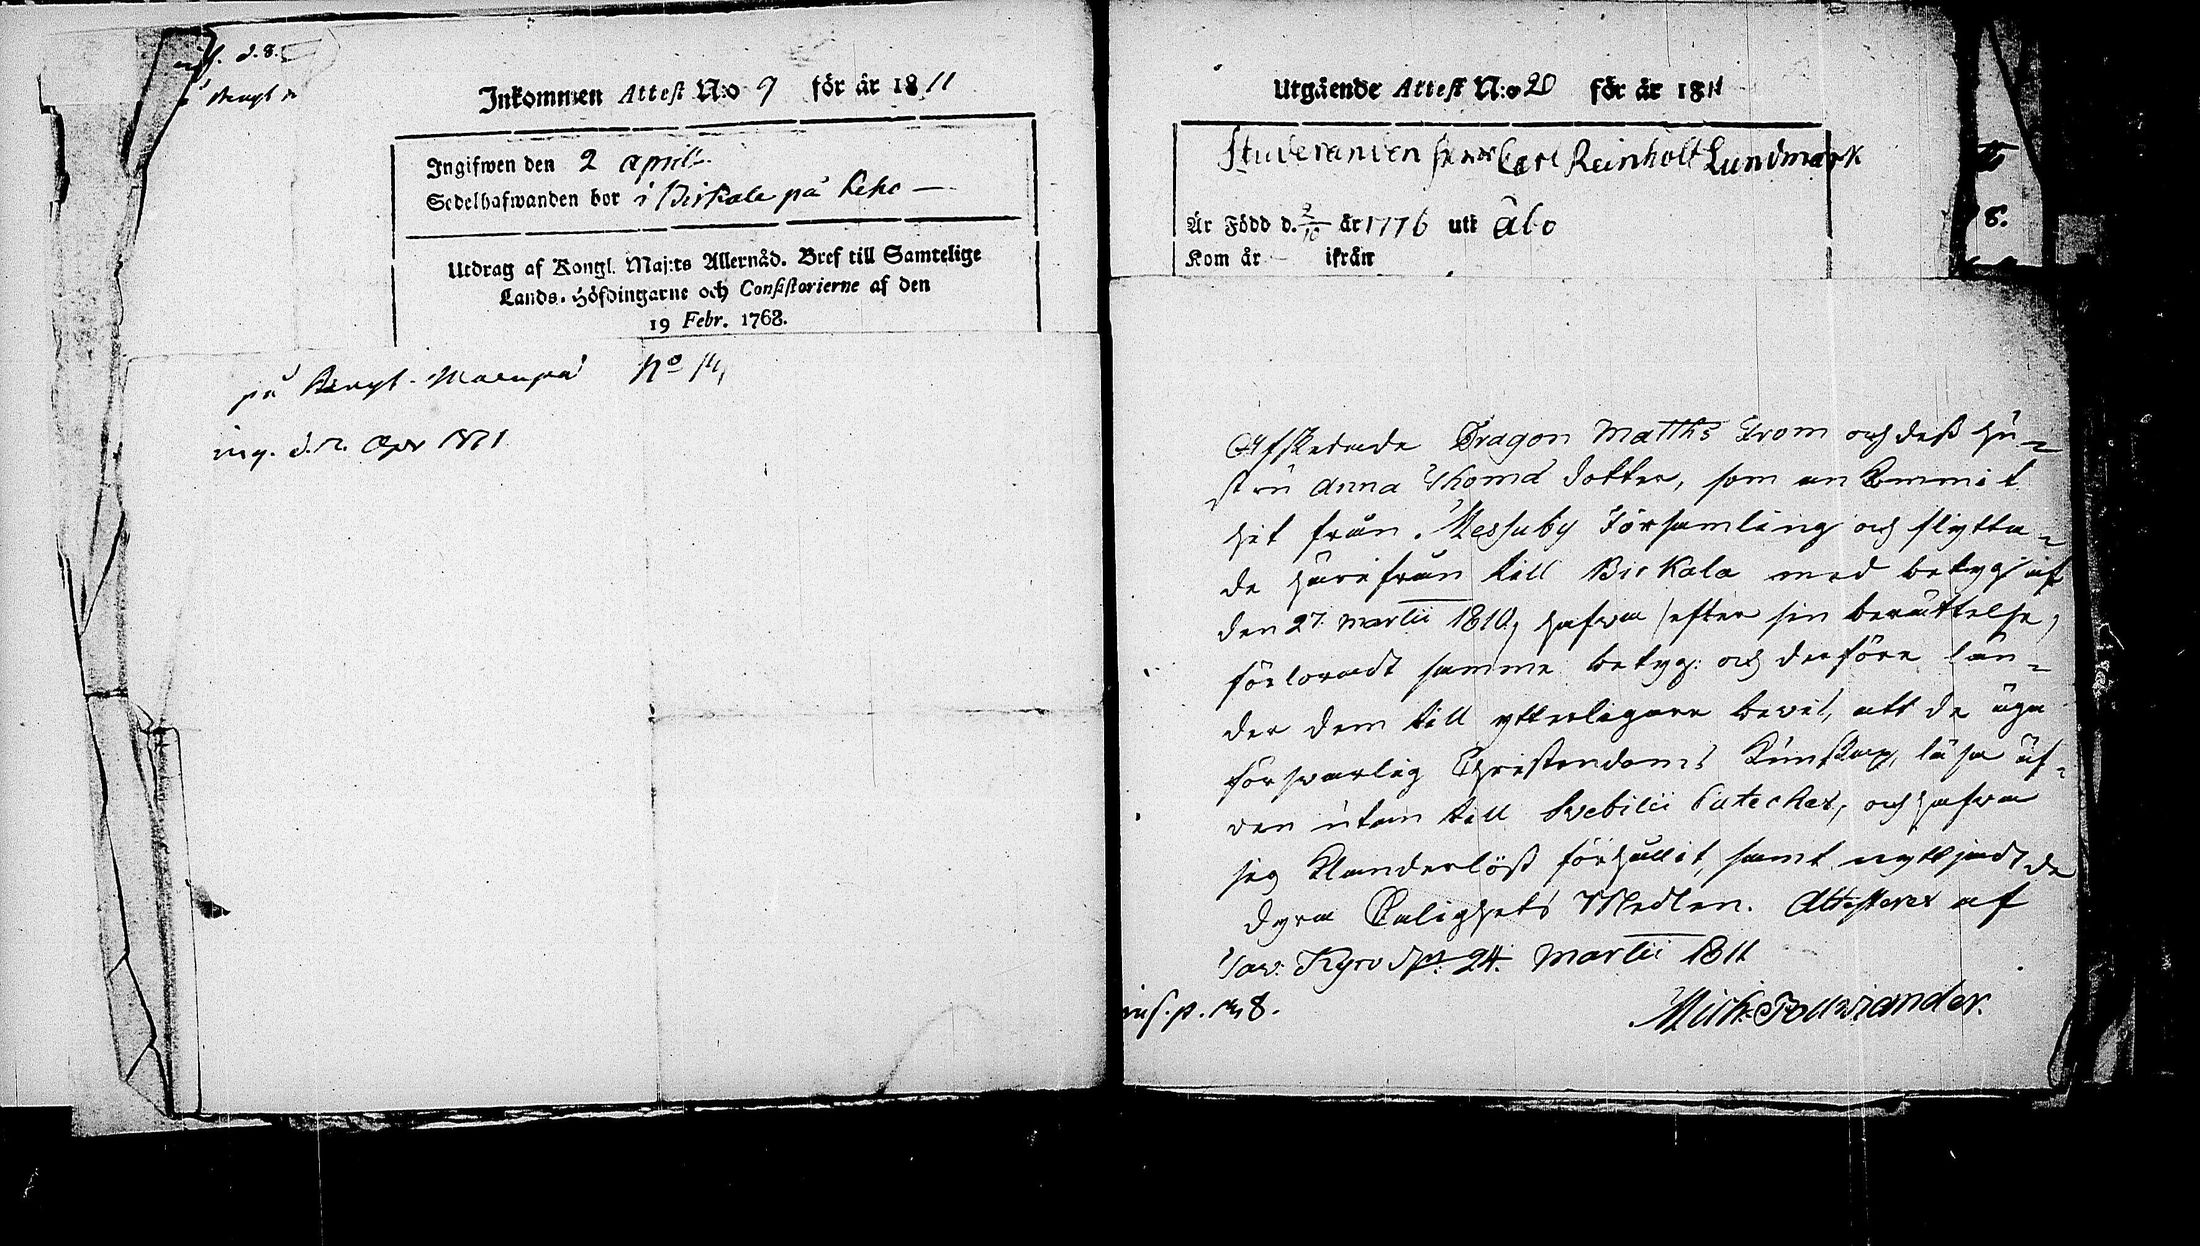 inf. d. 8.
Inkommen Attest N:o 9 för år 1811
Ingifwen den 2 april
Sedelhafwanden bor i Birkala på Leho —
Utdrag af Kongl. Maj:ts Allernåd. Bref till Samtelige
Lands-Höfdingarne och Consistorierne af den
19 Febr. 1768.
på Bengt No 14
ing. d. 2. Apr 1811
Utgående Attest N:o 20 för år 1811
Studeranden herr Carl Reinholt Lundmark
Är Född d. 2/10 år 1776 uti Åbo
Kom år — ifrån
8.
Afskedade Dragon Matths From och dess hu-
stru Anna Thomæ dotter, som ankommit
hit från Messuby Församling och flytta-
de härifrån till Birkala med betyg af
den 27. Martii 1810, hafva /efter sin berättelse,
förloradt samma betyg: och derföre län-
der dem till ytterligare bevis, att de äga
försvarlig Christendoms Kunskap, läsa äf-
ven utan till Svebilii Cateches, och hafva
sig Klanderlöst förhållit, samt nyttjadt de
dyra Salighets Medlen. Attesterar af
Tav. Kyro d. 24. Martii 1811
inf. p. 148.
Mich.